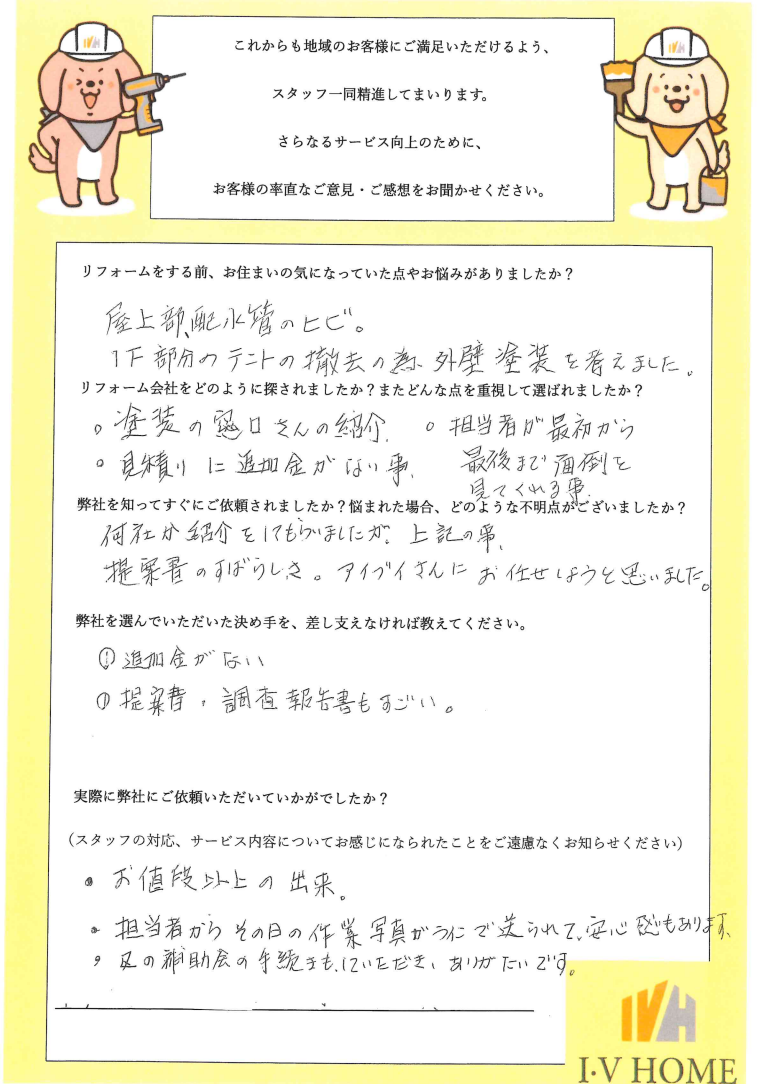 IVH
IVH
これからも地域のお客様にご満足いただけるよう、
スタッフ一同精進してまいります。
さらなるサービス向上のために、
お客様の率直なご意見・ご感想をお聞かせください。
リフォームをする前、お住まいの気になっていた点やお悩みがありましたか？
屋上部、配水管のヒビ。
1F部分のテントの撤去の為、外壁塗装を考えました。
リフォーム会社をどのように探されましたか？またどんな点を重視して選ばれましたか？
○ 塗装の窓口さんの紹介、
○ 見積りに追加金がない事、
○ 担当者が最初から
最後まで面倒を
見てくれる事、
弊社を知ってすぐにご依頼されましたか？悩まれた場合、どのような不明点がございましたか？
何社か紹介をしてもらいましたが、上記の事、
提案書のすばらしさ。アイブイさんにお任せしようと思いました。
弊社を選んでいただいた決め手を、差し支えなければ教えてください。
① 追加金がない
① 提案書、調査報告書もすごい。
実際に弊社にご依頼いただいていかがでしたか？
（スタッフの対応、サービス内容についてお感じになられたことをご遠慮なくお知らせください）
• お値段以上の出来。
• 担当者からその日の作業写真がラインで送られて、安心感もあります、
• 区の補助金の手続きも、していただき、ありがたいです。
IVH
I・V HOME